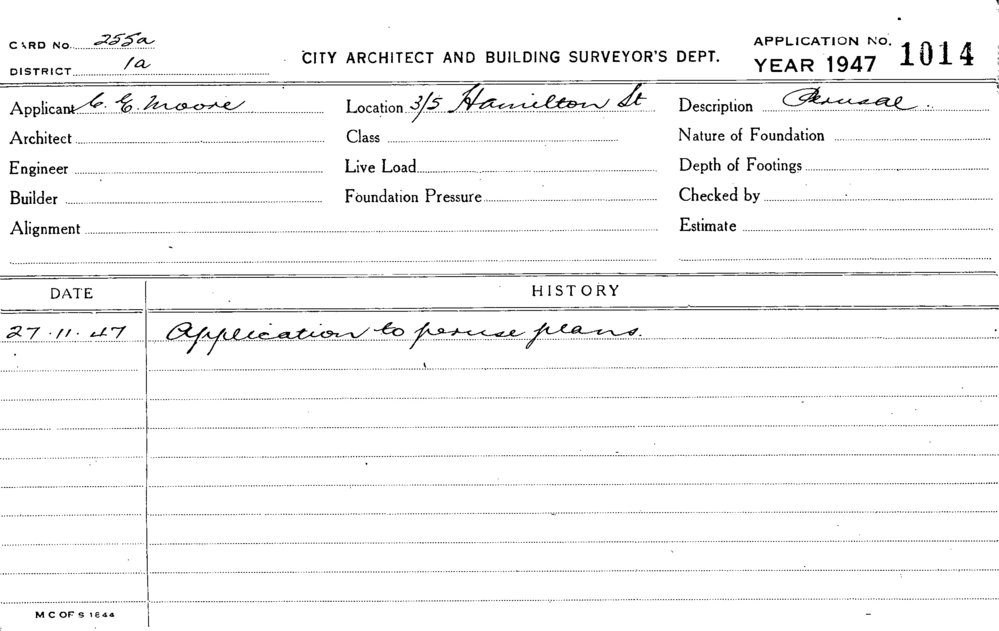 CARD No. 255a
DISTRICT 1a
CITY ARCHITECT AND BUILDING SURVEYOR'S DEPT.
APPLICATION No. 1014
YEAR 1947
Applicant C. E. Moore Location 3/5 Hamilton St Description Perusal.
Architect Class Nature of Foundation
Engineer Live Load Depth of Footings
Builder Foundation Pressure Checked by
Alignment Estimate
DATE HISTORY
27.11.47 Application to peruse plans.
M C OF S 1844